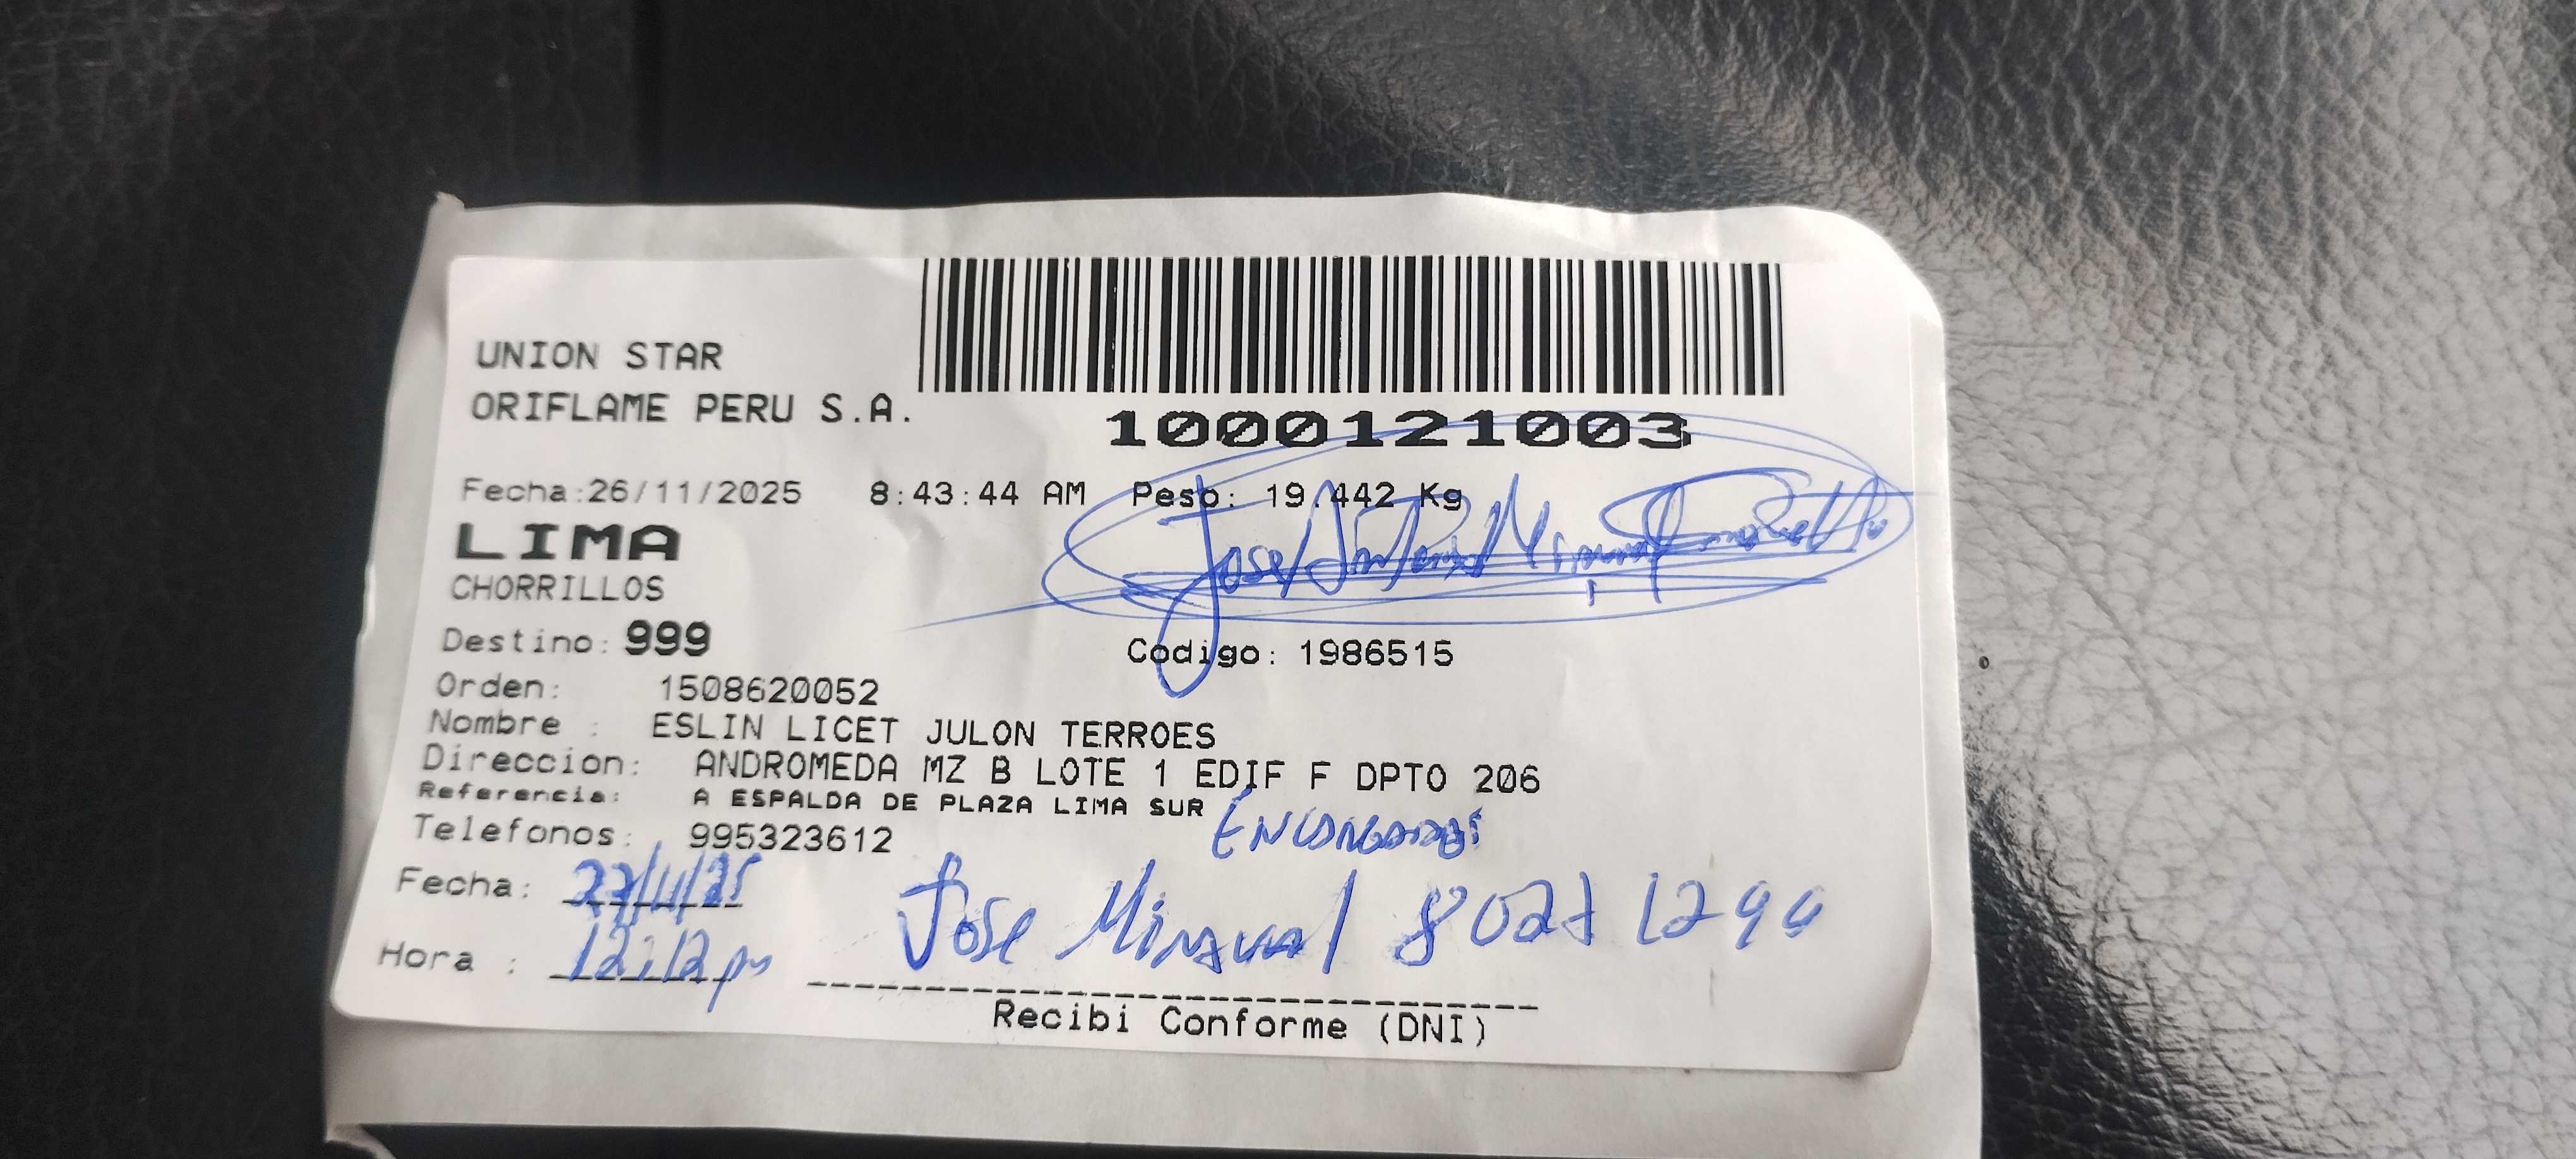 UNION STAR
ORIFLAME PERU S.A.
1000121003
Fecha:26/11/2025 8:43:44 AM Peso: 19.442 Kg
LIMA
CHORRILLOS
Destino: 999
Codigo: 1986515
Orden: 1508620052
Nombre : ESLIN LICET JULON TERROES
Direccion: ANDROMEDA MZ B LOTE 1 EDIF F DPTO 206
Referencia: A ESPALDA DE PLAZA LIMA SUR
Telefonos: 995323612
Fecha: 27/11/25
Jose
Hora : 12:12 pm
Recibi Conforme (DNI)